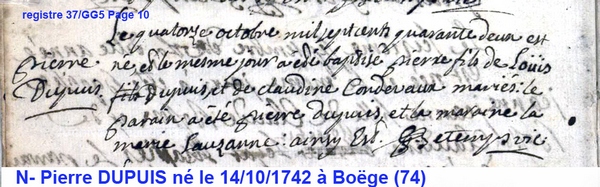 registre 37/GG5 Page 10
Le quatorze octobre mil sept cents quarante deux est
pierre
né, et le meme jour a eté baptisé pierre fils de Loüis
Dupuis
fils Dupuis, et de claudine Condevaux mariés: le
parain a été pierre dupuis, et la maraine la
marie Lauzanne: ainsy est.
N- Pierre DUPUIS né le 14/10/1742 à Boëge (74)